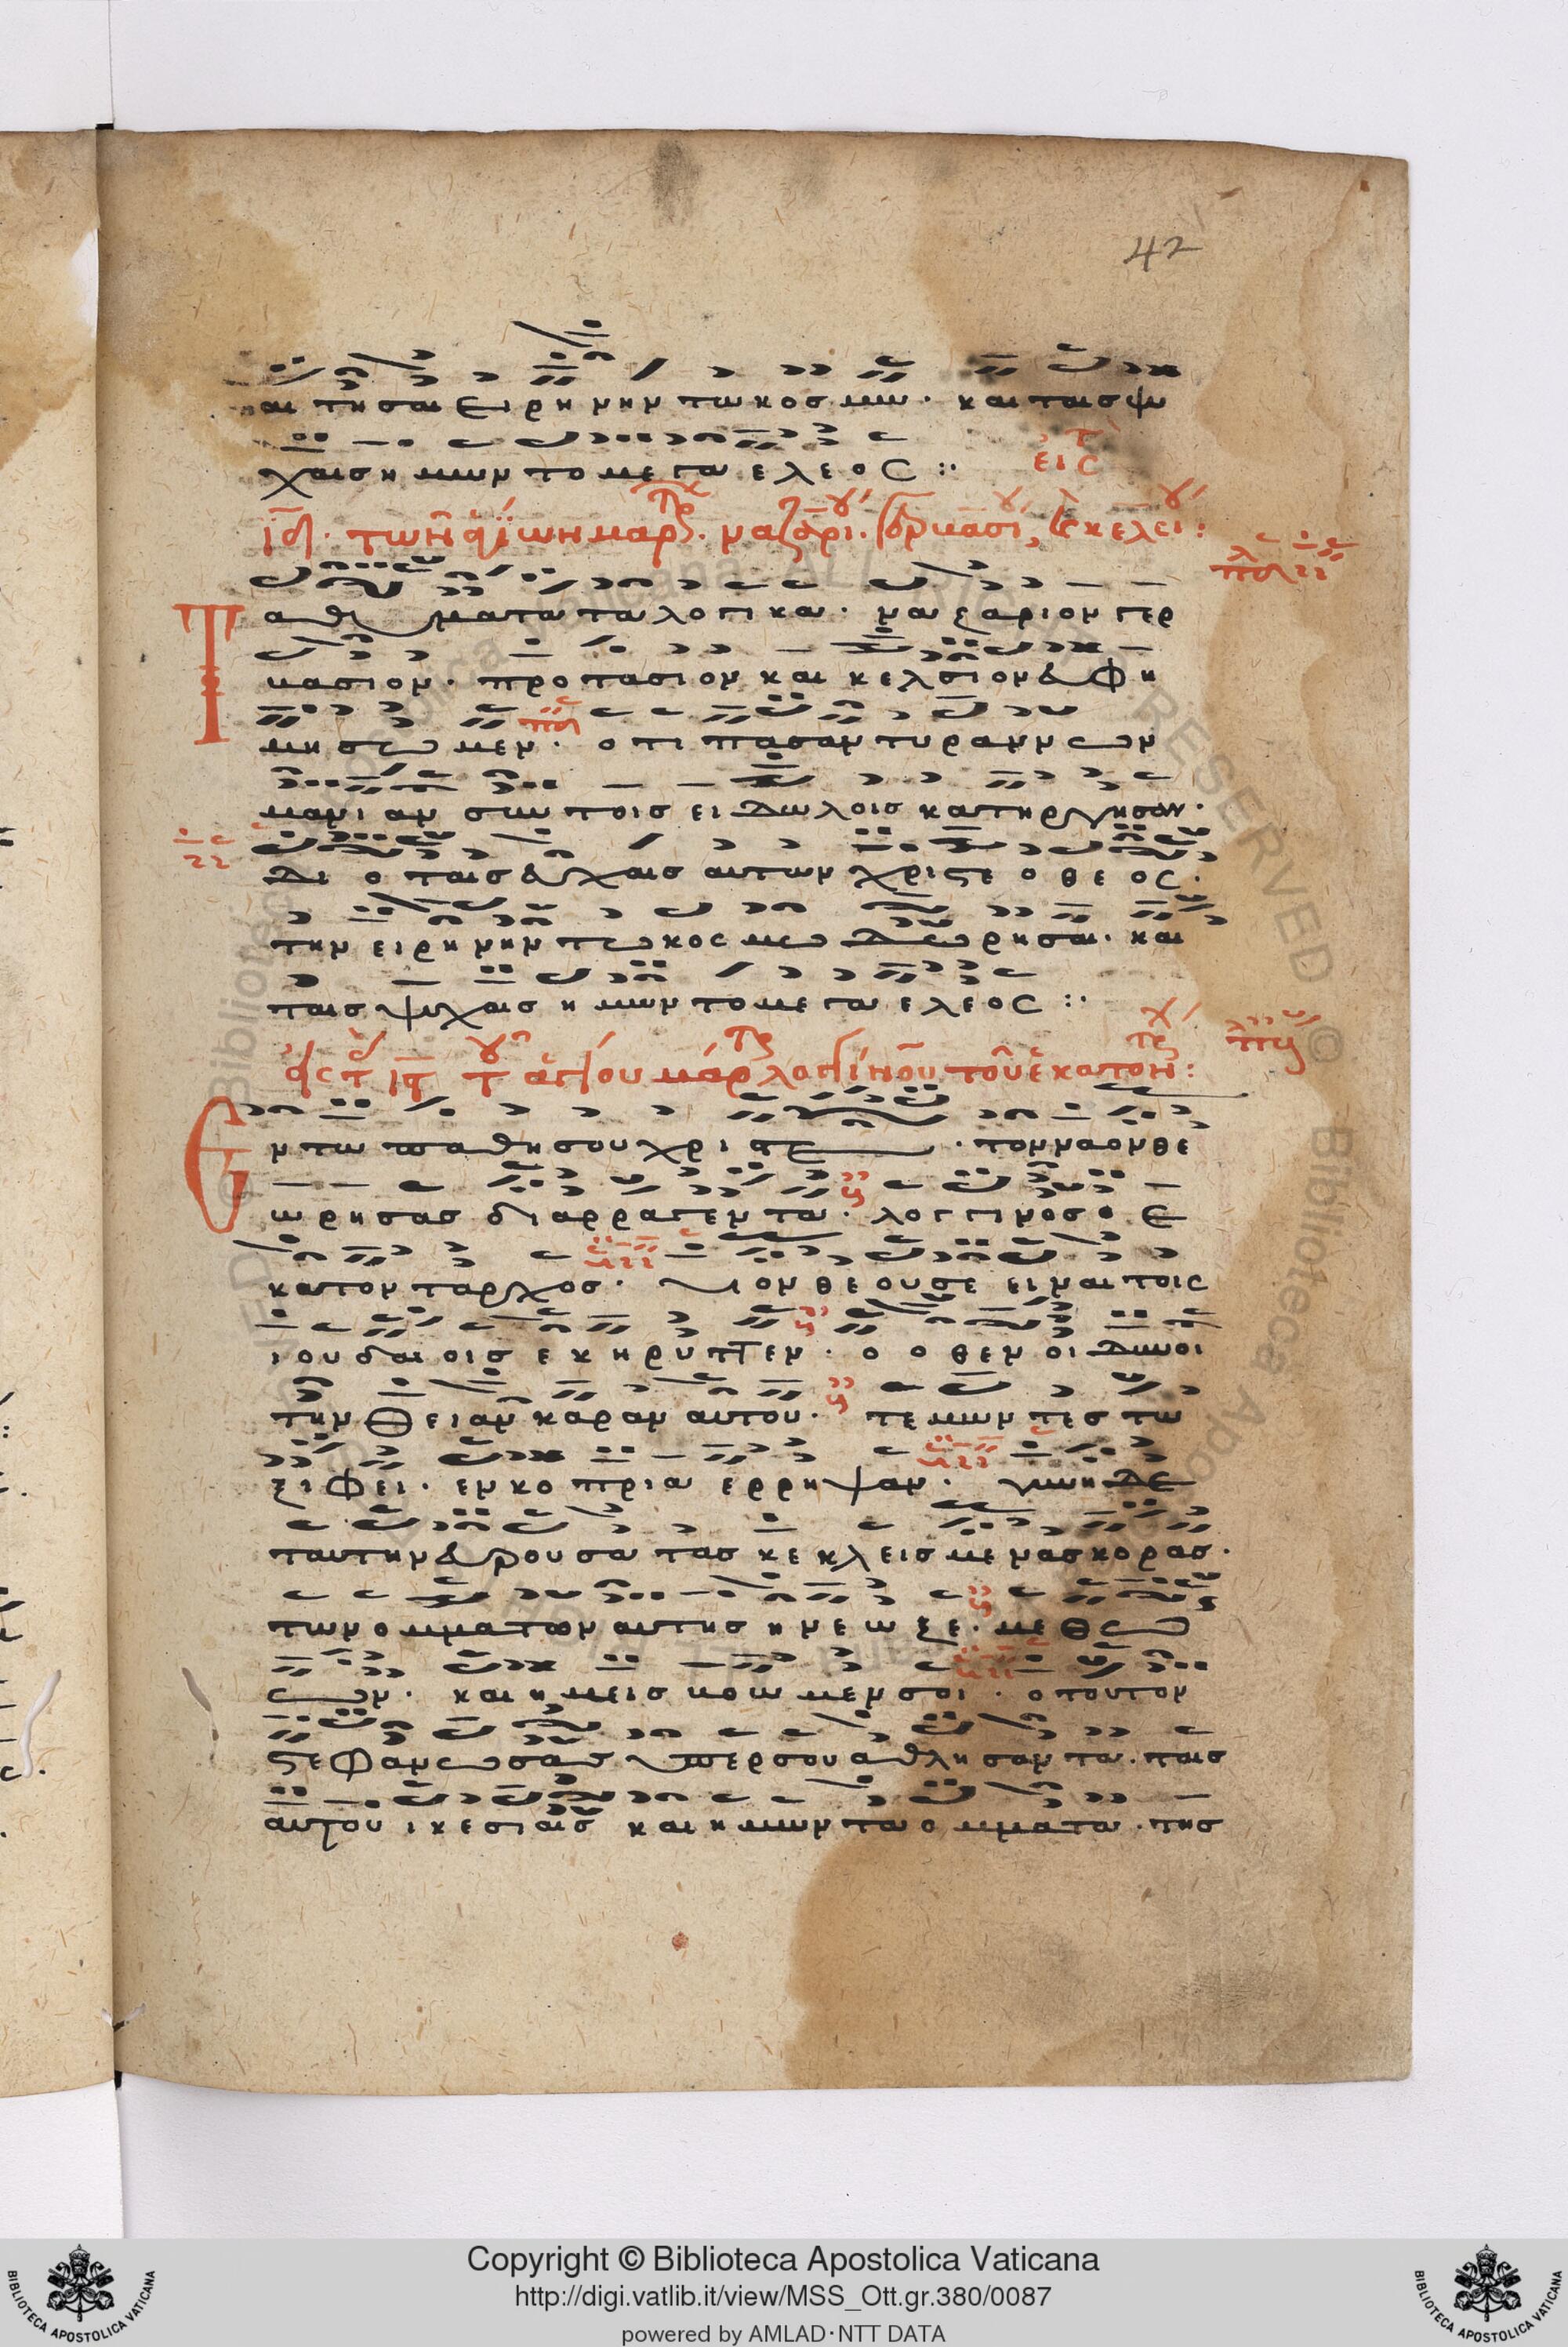 42
αιτησαι ειρηνην τω κοσμω· και ταις ψυ
χαις ημων το μεγα ελεος :·
εις τ
ιδ· των αγιων μαρ· ναζαρι· γερβασι, κελσι:
Τα αθλ ματα τα λογικα· ναζαριον γερ
βασιον· προτασιον και κελσιον ευφη
μησωμεν· οτι πασαν τυραννων
μανιαν συν τοις ειδωλοις κατηργησαν·
διο ταις ευχαις αυτων χριστε ο θεος·
την ειρηνην τω κοσμω δωρησαι· και
ταις ψυχαις ημων το μεγα ελεος :·
αγιου μαρ λογγινου του εκατον:
Εν τω παθη σου χριστε· τον ναον θε
ωρησας διαρραγεντα· λογγινος ο ε
κατονταρχος· υιον θεου σε ειναι τοις
ιουδαιοις εκηρυττεν· ο οθεν οι δημοι
την θειαν καραν αυτου· τεμνοντες τω
ξιφει· εν κοπρια ερρηψαν· γυνη δε
ταυτην ευρουσα τας κεκλεισμενας κορας·
των ομματων αυτης ηνεωξε· μεθ ω
ων· και ημεις βοωμεν σοι· ο τουτον
στεφανωσας υπερ σου αθλησαντα· ταις
αυτου ικεσιαις και ημων τα ομματα· της
Copyright © Biblioteca Apostolica Vaticana
http://digi.vatlib.it/view/MSS_Ott.gr.380/0087
powered by AMLAD·NTT DATA
BIBLIOTECA APOSTOLICA VATICANA
BIBLIOTECA APOSTOLICA VATICANA